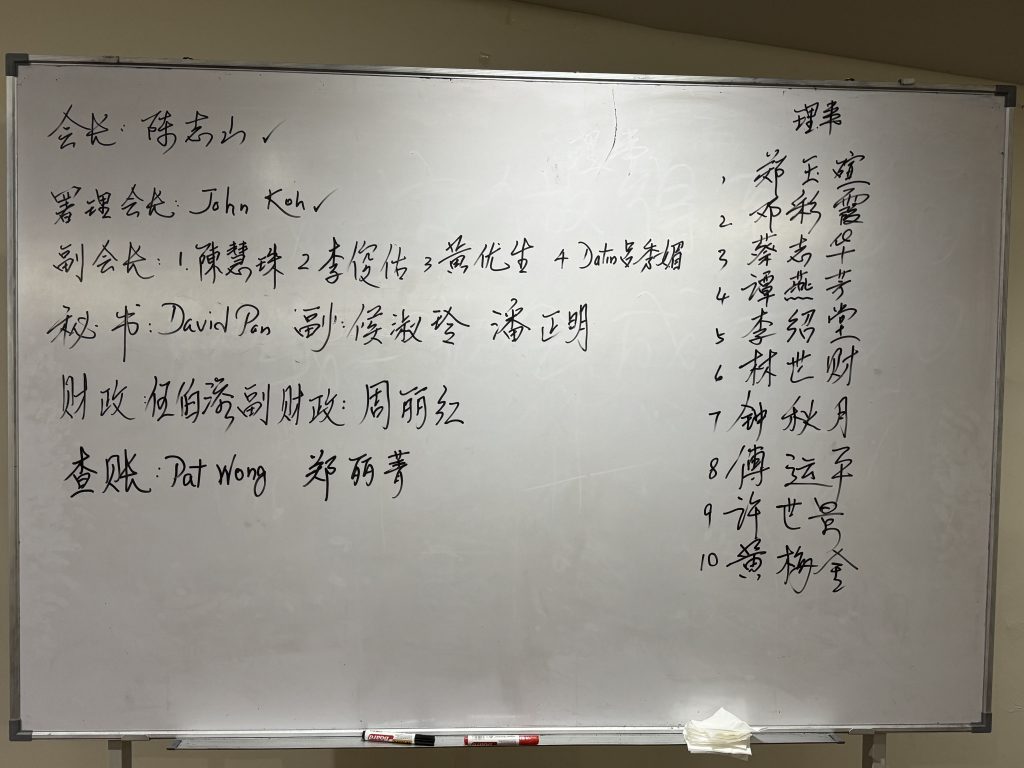 会长: 陈志山 ✓
署理会长: John Koh ✓
副会长: 1. 陳慧珠 2 李俊估 3 黄优生 4 Datin 吕秀媚
秘书: David Pan 副: 侯淑玲 潘正明
财政: 任伯 副财政: 周丽红
查账: Pat Wong 郑丽菁
理事
1 郑玉
2 邓彩霞
3 蔡志华
4 谭燕芳
5 李绍堂
6 林世财
7 钟秋月
8 傅运平
9 许世景
10 黄梅金